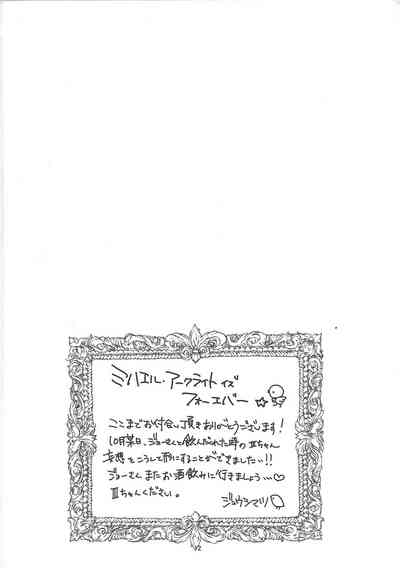 ミハエル・アークライト イズ
フォーエバー ☆
ここまでお付合い頂きありがとうございます!
10月某日、ジョーさんと飲んだくれた時のⅢちゃん
妄想をこうして形にすることができました…!!
ジョーさん またお酒飲みに行きましょう…♡
Ⅲちゃんください。
ジョウシマツ
12